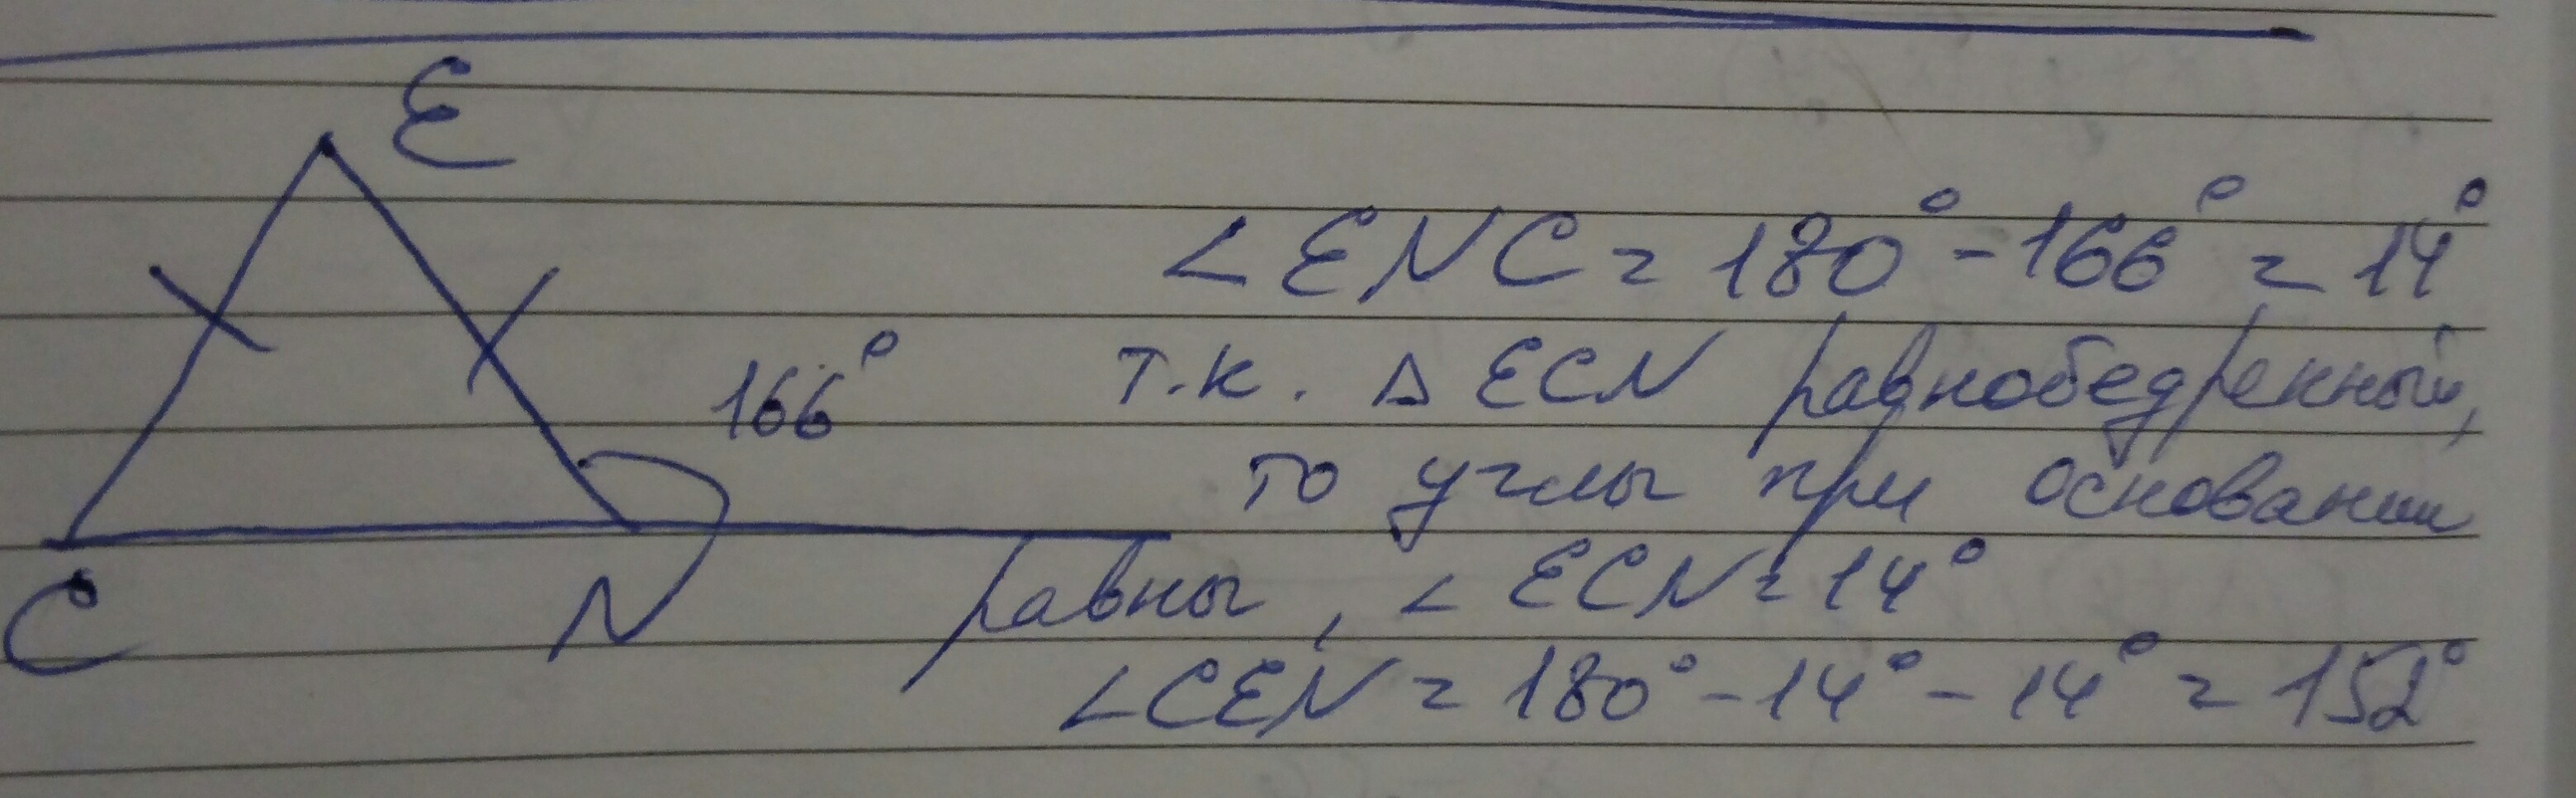 E
∠ENC = 180° - 166° = 14°
166°
т.к. Δ ECN равнобедренный,
то углы при основании
равны, ∠ECN = 14°
C
N
∠CEN = 180° - 14° - 14° = 152°